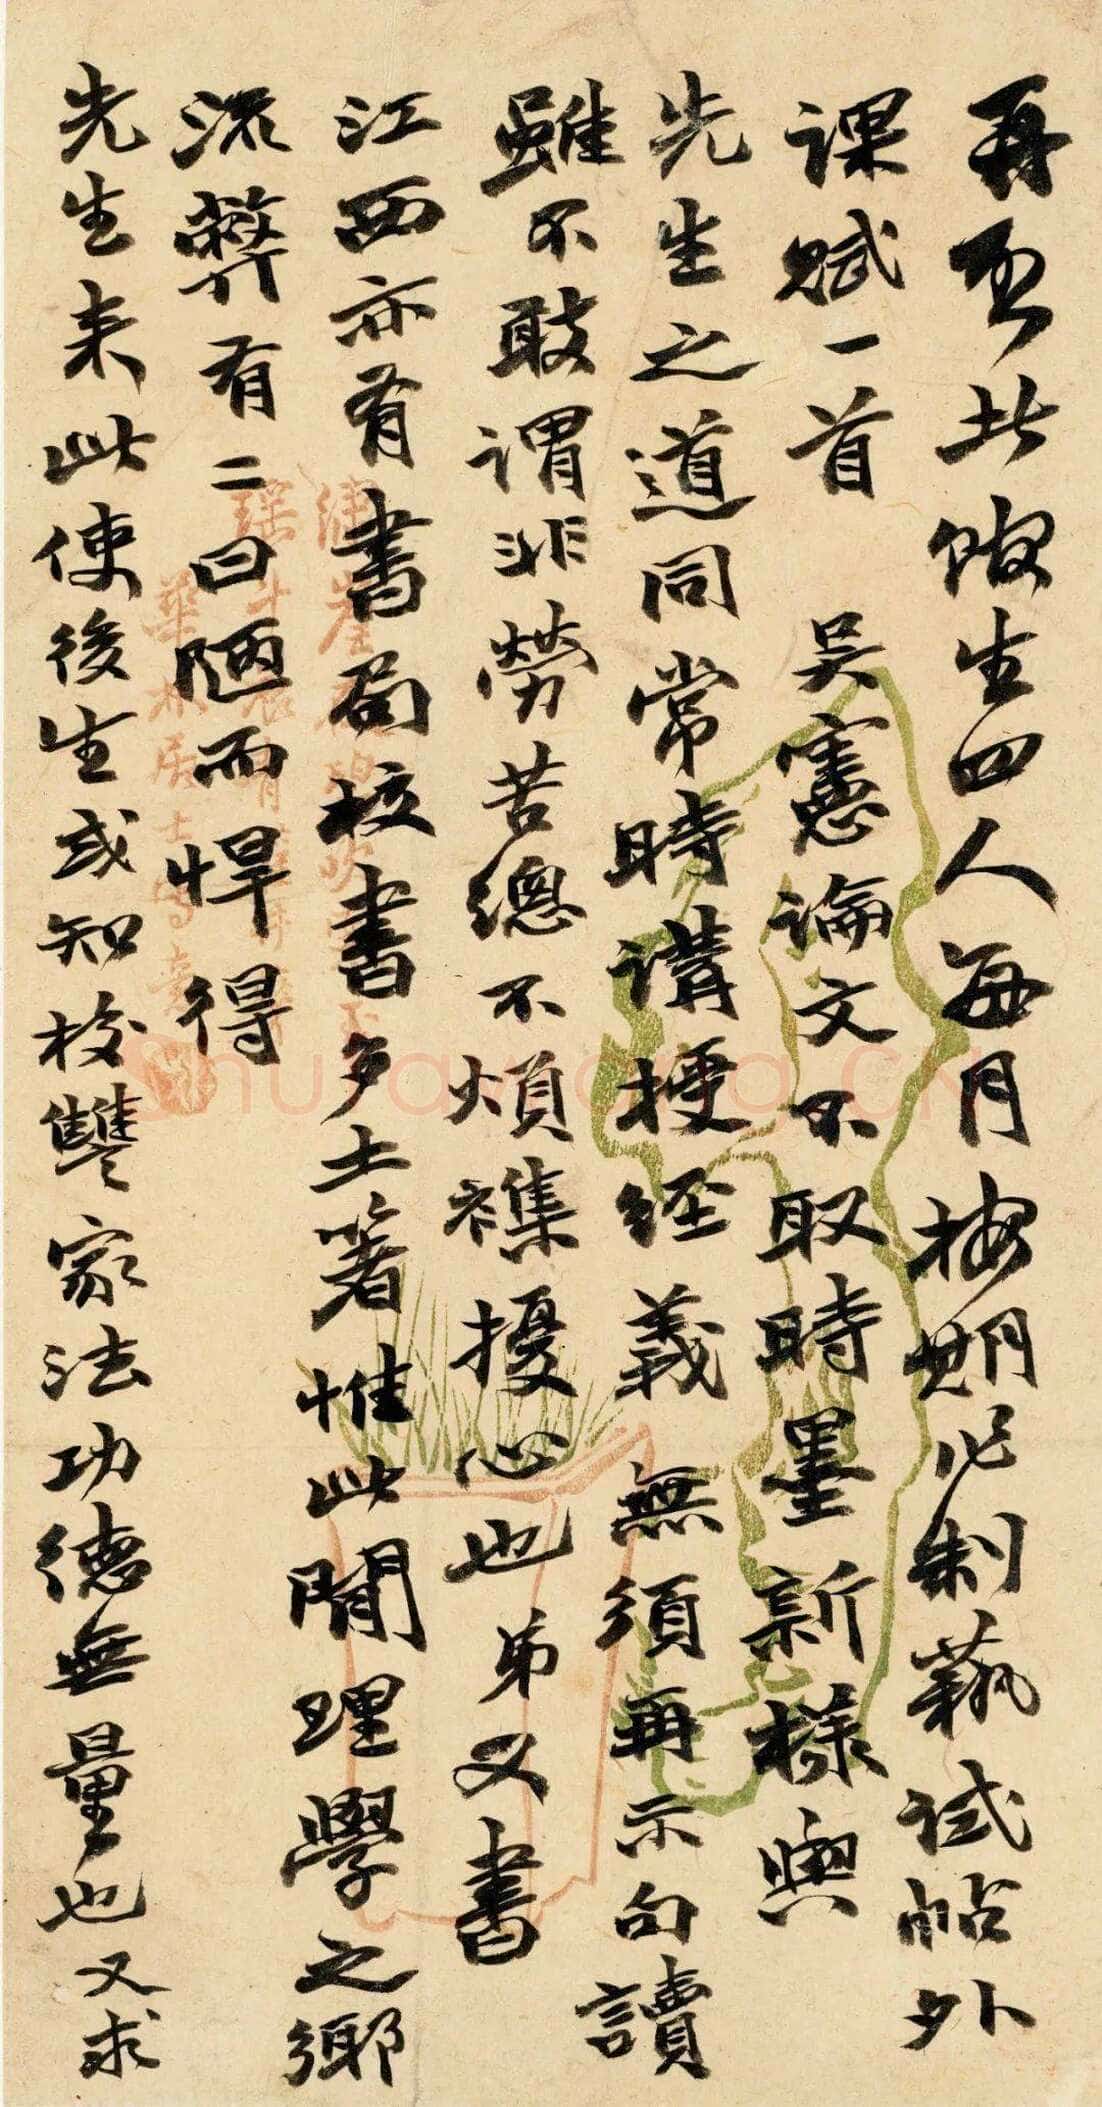 再啓此館生四人每月按期作制藝試帖外
課賦一首 吳憲論文不取時墨新樣與
先生之道同常時講授經義無須再示句讀
雖不敢謂非勞苦總不煩襍擾心也弟又書
江西亦有書局校書多土著惟此閒理學之鄉
流弊有二曰陋而悍得
先生来此使後生或知校讐家法功德無量也又求
Shuraworld.CN